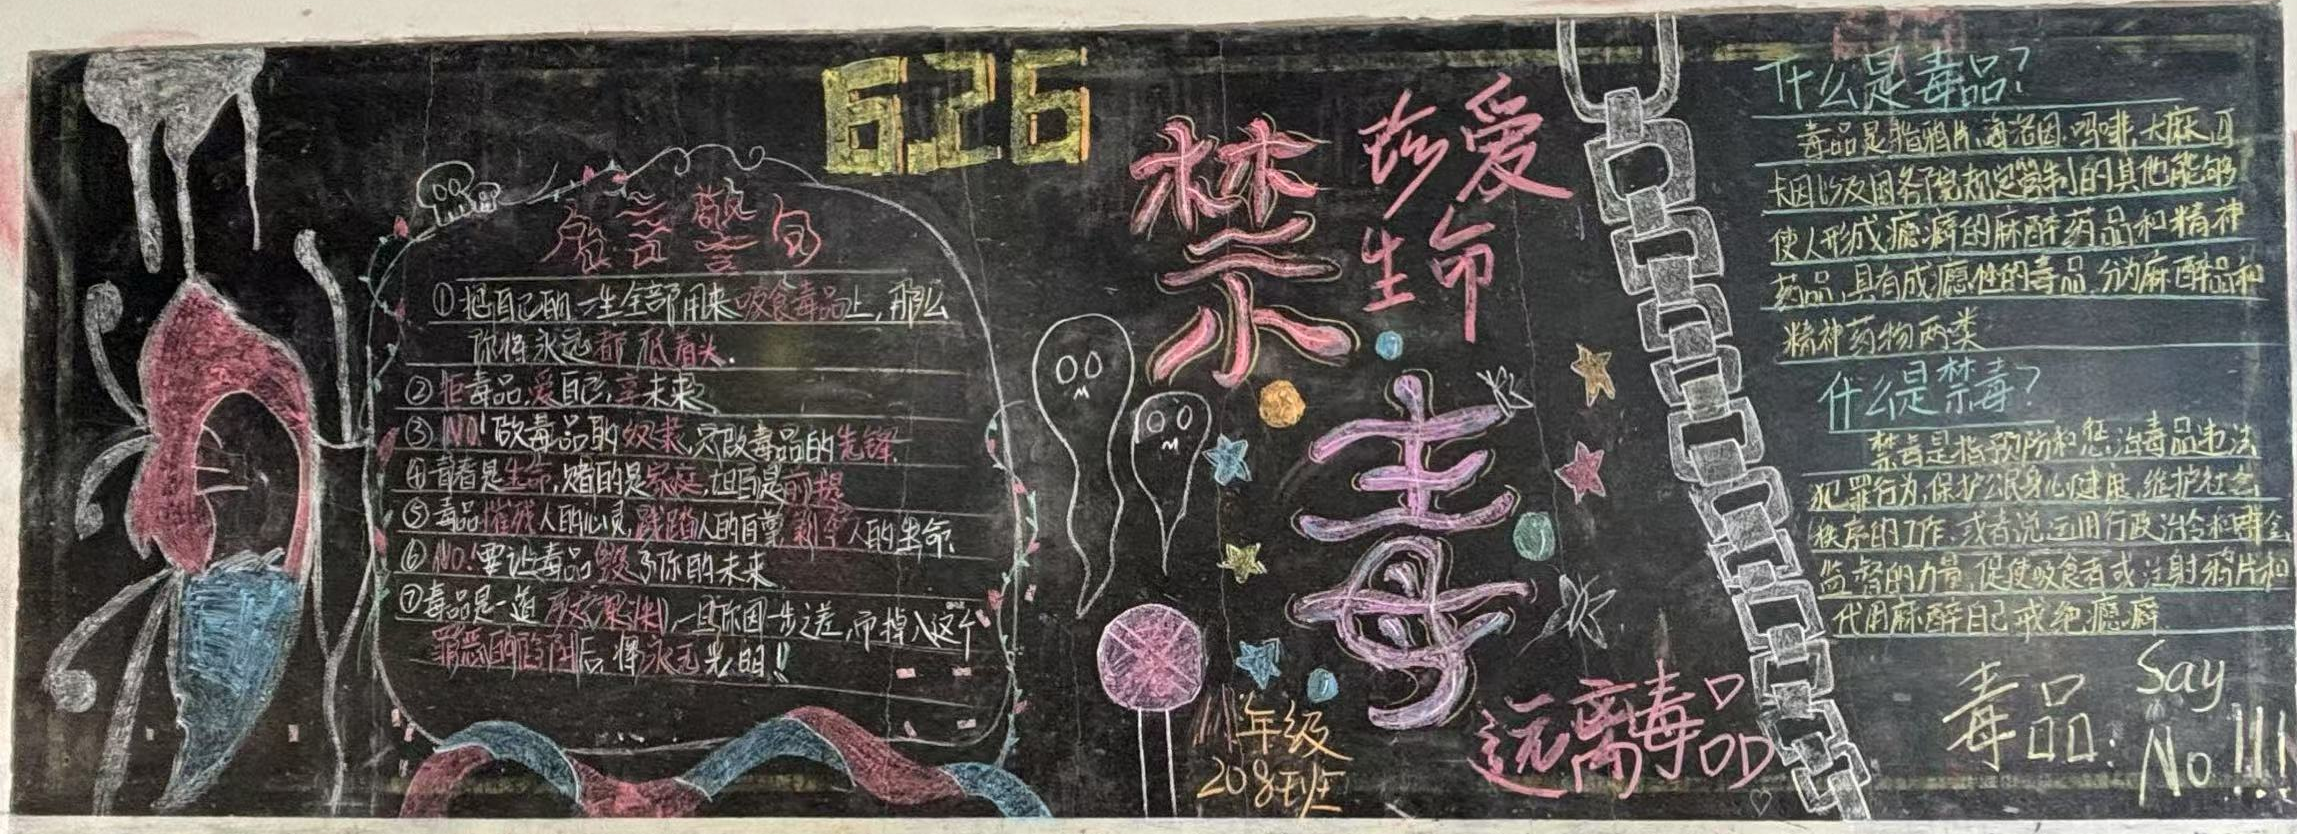 626
禁毒
珍爱
生命
远离毒品
年级
208班
警句
①把自己的一生全部用来吸食毒品上，那么
你将永远都低着头.
②拒毒品,爱自己,享未来
③NO!做毒品的奴隶,只做毒品的先锋.
④青春是生命,赌的是家庭,
⑤毒品摧残人的心灵,践踏人的自尊,剥夺人的生命.
⑥NO!要让毒品毁了你的未来
⑦毒品是一道,一旦你因一步之差,而掉入这个
罪恶的陷阱后,将永无光明!!
什么是毒品?
毒品是指鸦片,海洛因.吗啡,大麻,可
卡因以及国务院规定管制的其他能够
使人形成瘾癖的麻醉药品和精神
药品,具有成瘾性的毒品.分为麻醉品和
精神药物两类
什么是禁毒?
禁毒是指预防和惩治毒品违法
犯罪行为,保护公民身心健康,维护社会
秩序的工作.或者说运用行政治令和
监督的力量,促使吸食者或注射鸦片和
代用麻醉自己戒绝瘾癖
毒品:
Say
No!!!